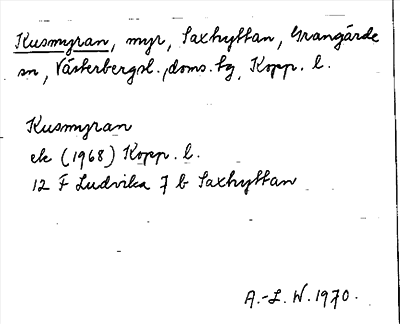 Kusmyran, myr, Saxhyttan, Grangärde
sn, Västerbergsl., doms. hg, Kopp. l.
Kusmyran
ek (1968) Kopp. l.
12 F Ludvika 7 b Saxhyttan
A.-L. W. 1970.